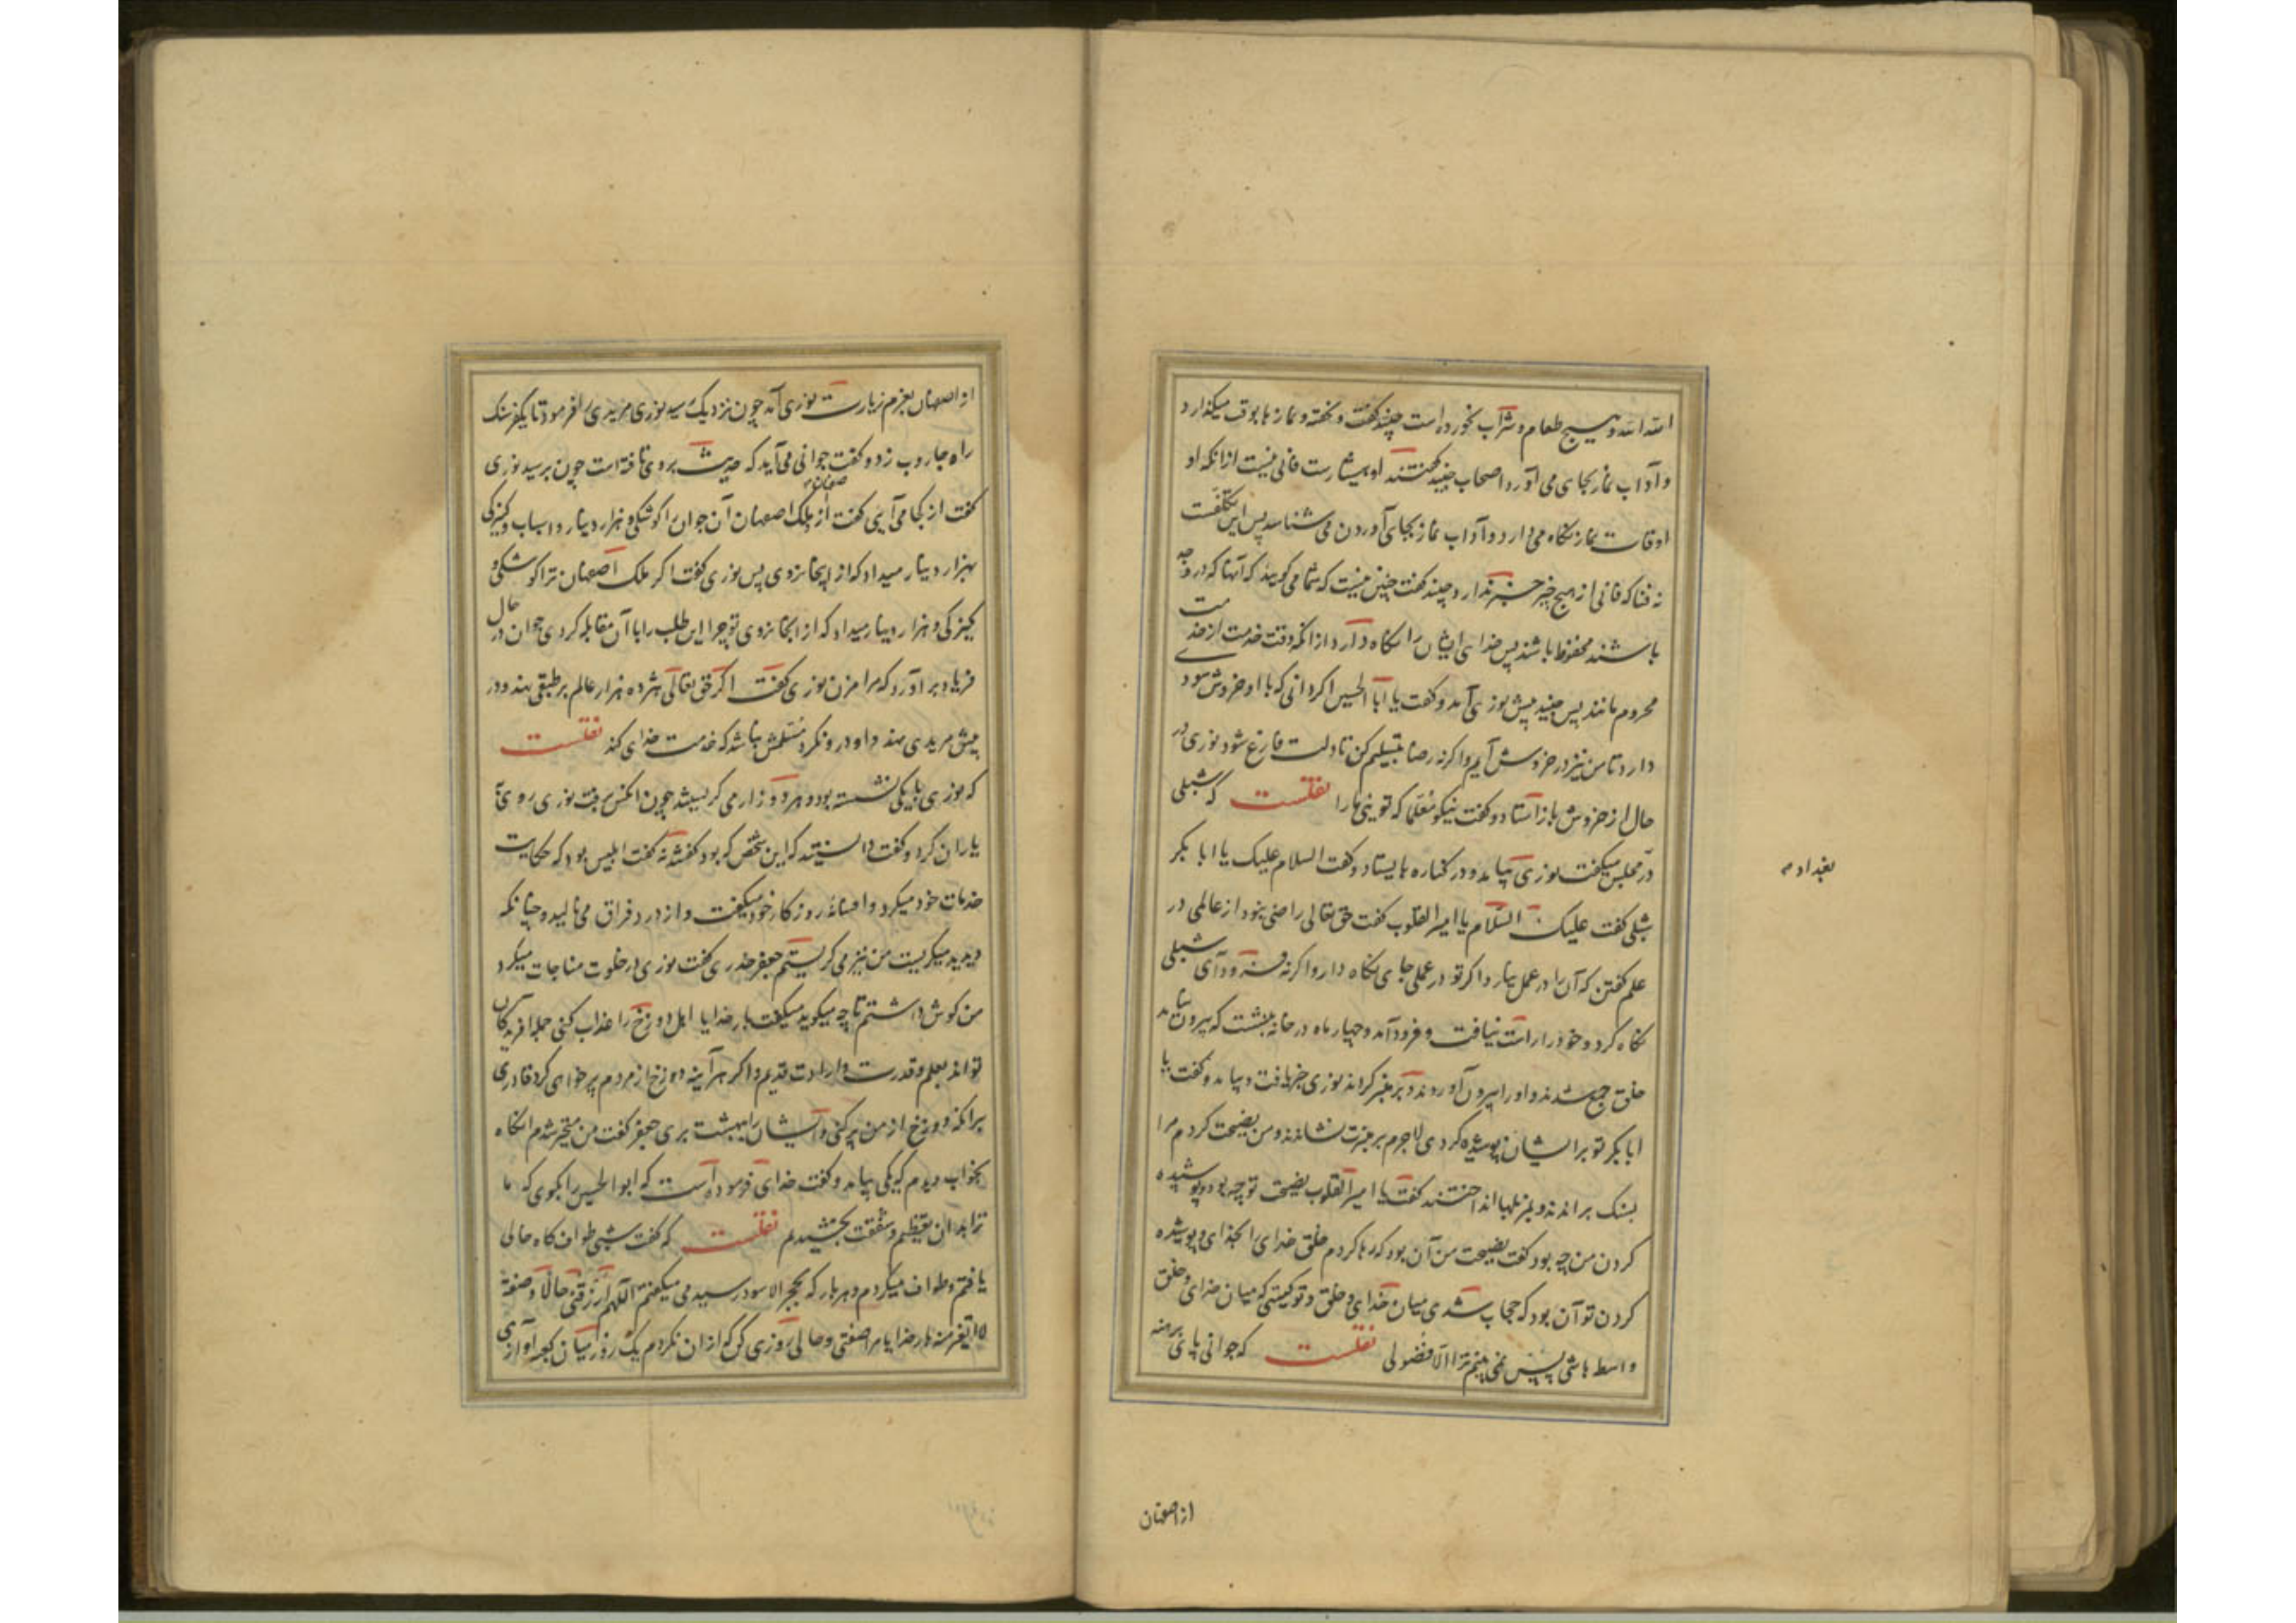 الله الله و هیچ طعام و شراب نخورده است چنید گفت و نخفته و نمازها بوقت میگذارد
و آداب نماز بجای می آورد اصحاب جنید گفتند او هشیارست فانی نیست از آنکه او
اوقات نماز نگاه می دارد و آداب نماز بجای آوردن می شناسد پس این تکلفست
نه فنا که فانی از هیچ چیز خبر ندارد جنید گفت چنین نیست که شما می گویید که آنها که در وجد
باشند محفوظ باشند پس خدای ایشان را نگاه دارد از آنکه وقت خدمت از خدمت
محروم مانند پس جنید پیش نوری آمد و گفت یا ابا الحسین اگر دانی که با او خروش سود
دارد تا من نیز در خروش آیم و اگر نه رضا بتسلیم کن تا دلت فارغ شود نوری در
حال از خروش باز استاد و گفت نیکو معلما که تویی ما را نقلست که شبلی
در مجلس میگفت نوری بیامد و در کناره بایستاد و گفت السلام علیک یا ابا بکر
شبلی گفت علیک السلام یا امیر القلوب گفت حق تعالی راضی نبود از عالمی در
علم گفتن که آن را در عمل نیارد اگر تو در عملی جای نگاه دار و اگر نه فرود آی شبلی
نگاه کرد و خود را راست نیافت و فرود آمد و چهار ماه در خانه بنشست که بیرون نیامد
خلق جمع شدند و او را بیرون آوردند و بر منبر کردند نوری خبر یافت و بیامد و گفت یا
ابا بکر تو بر ایشان پوشیده کردی لاجرم بر منبرت نشاندند و من نصیحت کردم مرا
بسنگ براندند و بمزبلها انداختند گفت یا امیر القلوب نصیحت تو چه بود و پوشیده
کردن من چه بود گفت نصیحت من آن بود که رها کردم خلق خدای را بخدای و پوشیده
کردن تو آن بود که حجاب شدی میان خدای و خلق و تو کیستی که میان خدای و خلق
واسط باشی پس نمی بینم ترا الا فضولی نقلست که جوانی پای برهنه
بغداد م
از اصفهان
از اصفهان بعزم زیارت نوری آمد چون نزدیک رسید نوری مریدی را فرمود تا یکفرسنگ
راه جاروب زد و گفت جوانی می آید که حدیث بر وی تافته است چون برسید نوری
گفت از کجا می آیی گفت از ملک اصفهان آن جوان را کوشکی و هزار دینار و اسباب و کنیزکی
بهزار دینار میداد که از اینجا نروی پس نوری گفت اگر ملک اصفهان ترا کوشکی و
کنیزکی و هزار دینار میداد که از اینجا نروی تو چرا این طلب را با آن مقابله کردی جوان در حال
فریاد بر آورد که مرا مزن نوری گفت اگر حق تعالی هژده هزار عالم بر طبقی نهد و در
پیش مریدی نهد و او در و نگرد مسلمش نباشد که خدمت خدای کند نقلست
که نوری با یکی نشسته بود و هر دو زار می گریستند چون آنکس برفت نوری روی با
یاران کرد و گفت دانستید که این شخص که بود گفتند نه گفت ابلیس بود که حکایت
خدمات خود میکرد و افسانه روزگار خود میگفت و از درد فراق می نالید و چنانکه
دیدید میگریست من نیز می گریستم جعفر خدری گفت نوری در خلوت مناجات میکرد
من گوش داشتم تا چه میگوید میگفت بار خدایا اهل دوزخ را عذاب کنی جمله آفریدگان
تواند بعلم و قدرت و ارادت قدیم و اگر هر آینه دوزخ از مردم پر خواهی کرد قادری
بر آنکه دوزخ از من پر کنی و ایشان را ببهشت بری جعفر گفت من متحیر شدم آنگاه
بخواب دیدم که یکی بیامد و گفت خدای فرموده است که ابو الحسین را بگوی که ما
ترا بدان تعظیم و شفقت بخشیدم نقلست که گفت شبی طواف گاه خالی
یافتم و طواف میکردم و هر بار که بحجر الاسود رسیدمی میگفتم اللهم ارزقنی حالا و صفة
لا اتغیر منه بار خدایا مرا صفتی و حالی روزی کن که از آن نگردم یک روز از میان کعبه آوازی